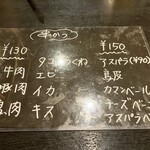 串かつ
¥130
牛肉
豚肉
鳥肉
タコつくね
エビ
イカ
キス
¥150
アスパラ(¥90)
鳥皮
カマンベール
チーズベーコン
アスパラベ